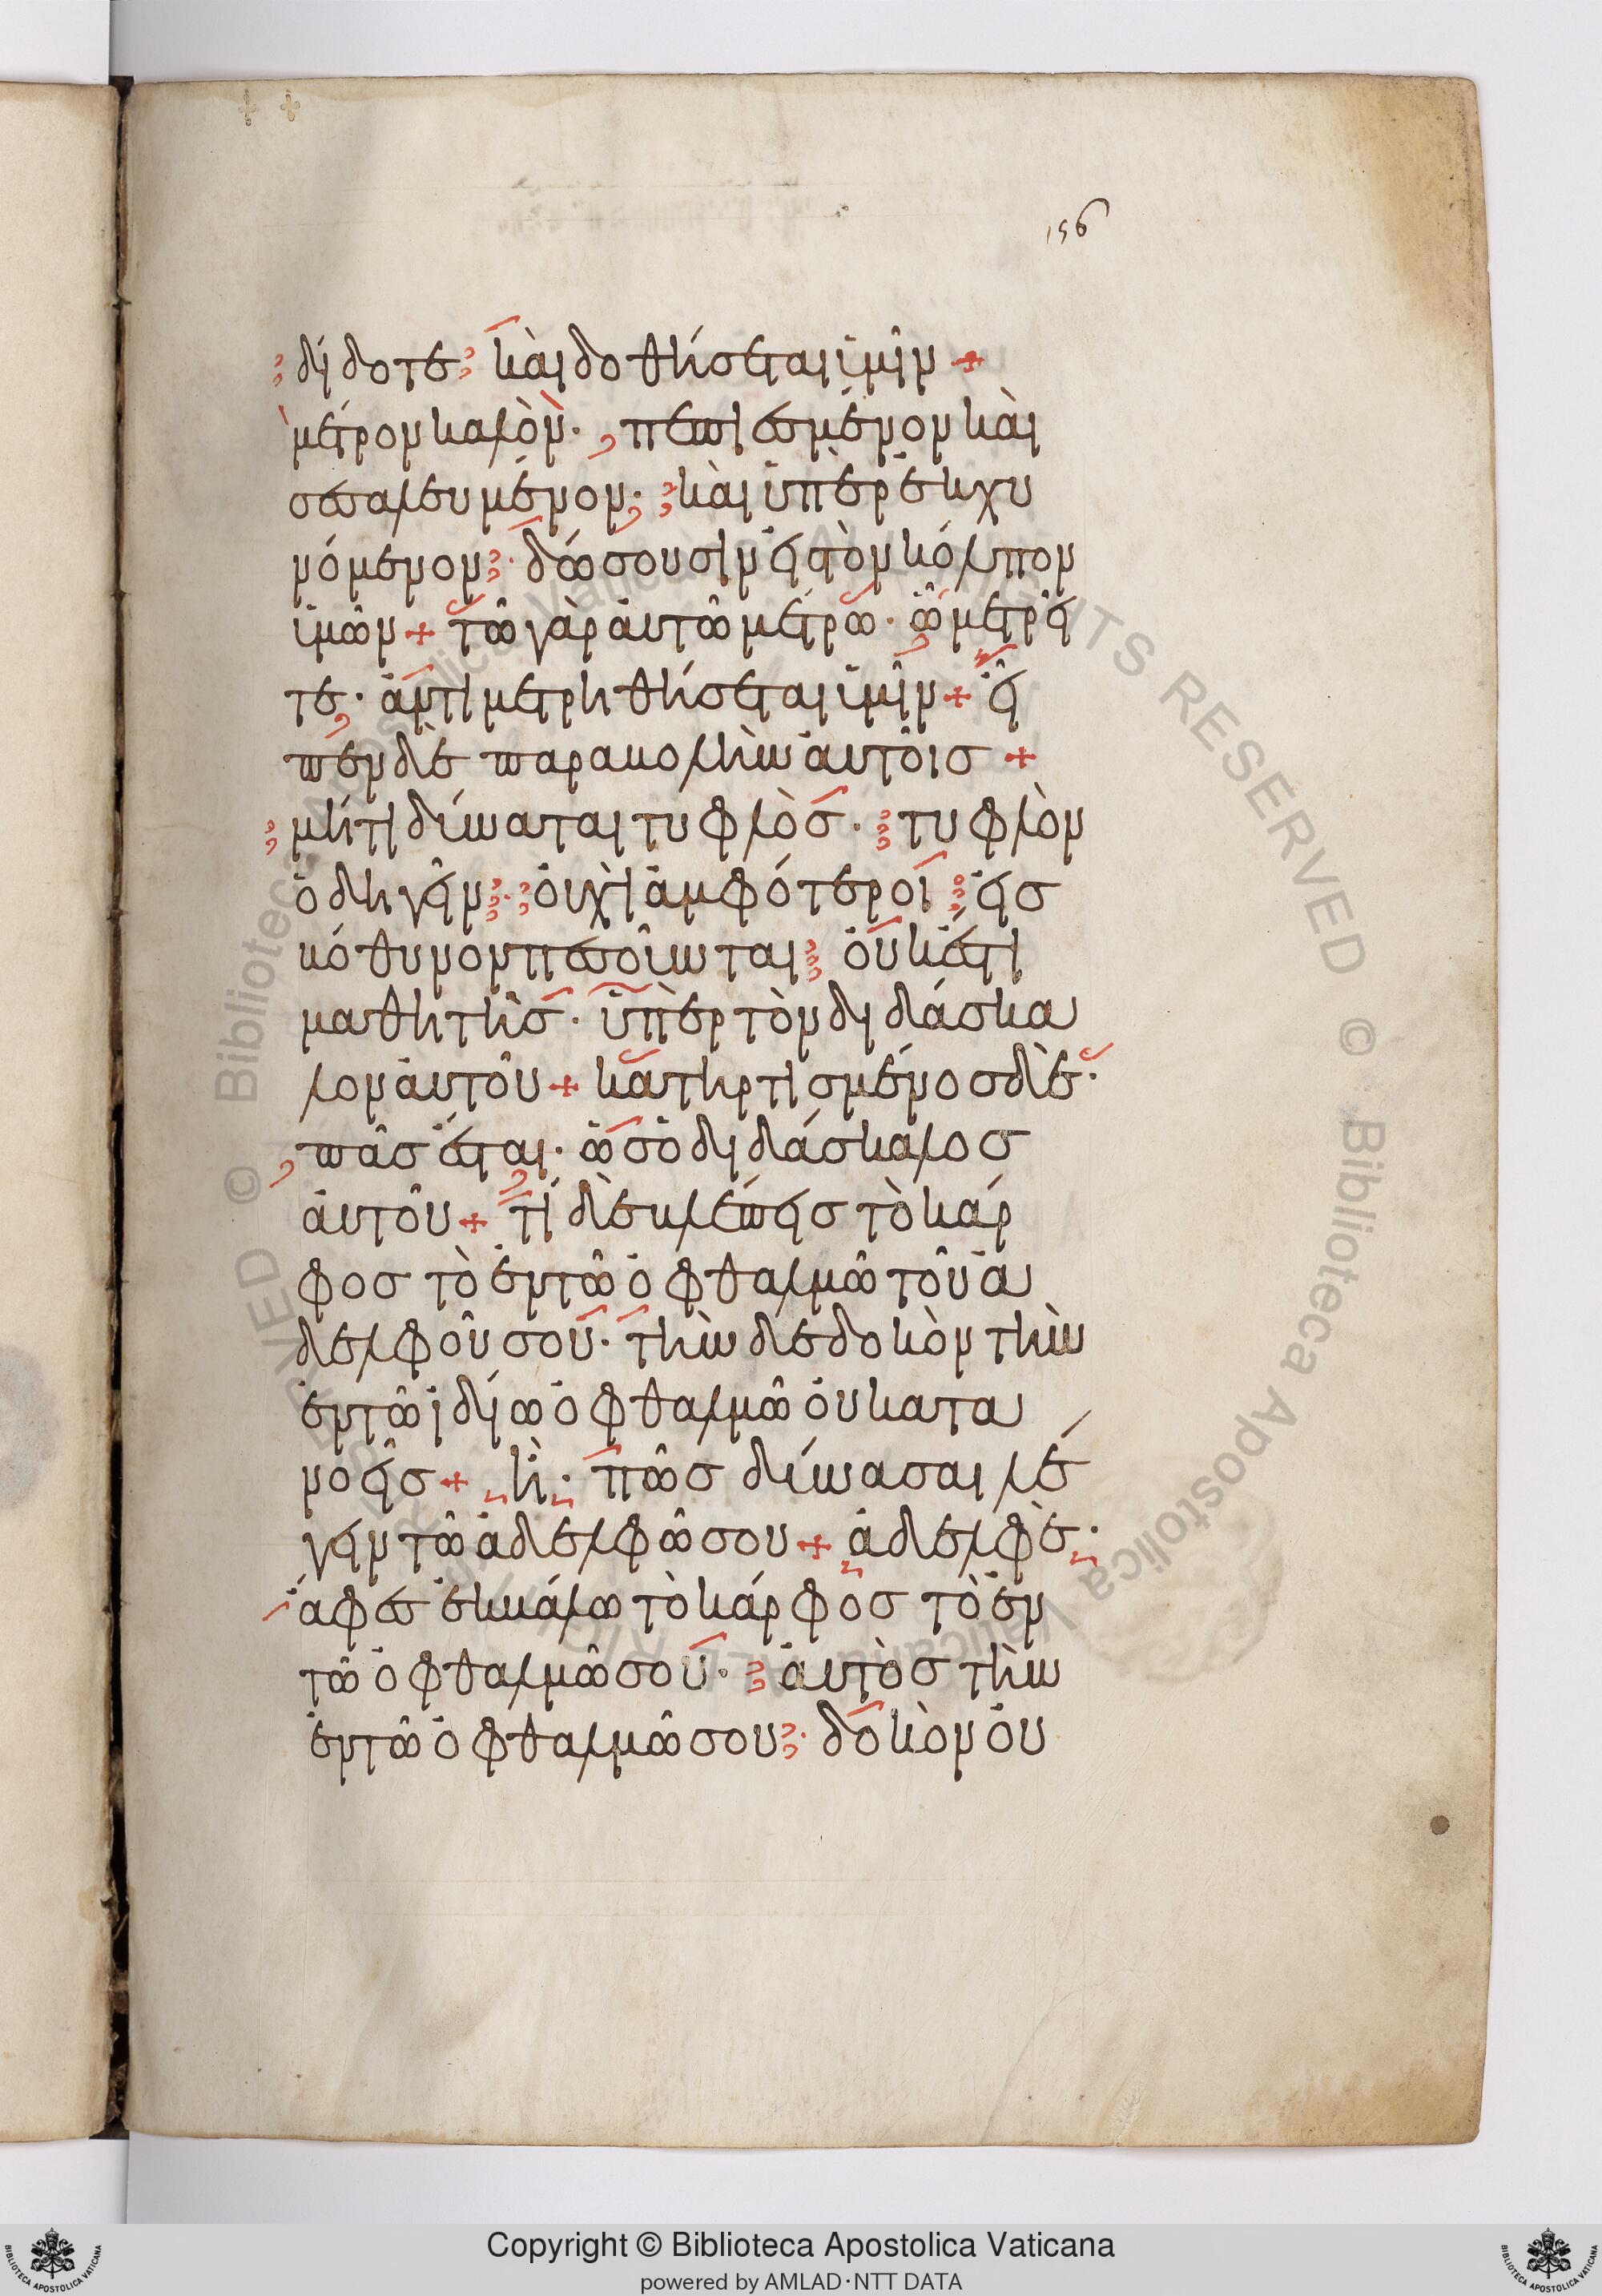 156
δίδοτε· καὶ δοθήσεται ὑμῖν +
μέτρον καλὸν· πεπιεσμένον καὶ
σεσαλευμένον· καὶ ὑπὲρ ἐκχυ
νόμενον· δώσουσιν εἰς τὸν κόλπον
ὑμῶν + τῶ γὰρ ἀυτῶ μέτρω· ὧ μετρεῖ
τε· ἀντιμετρηθήσεται ὑμῖν + εἶ
πεν δὲ παραβολὴν ἀυτοῖσ +
μήτι δύναται τυφλὸσ· τυφλὸν
ὁδηγεῖν· ὀυχὶ ἀμφότεροι εἰσ
βόθυνον πεσοῦνται· ὀυκ ἔστι
μαθητὴσ· ὑπὲρ τὸν διδάσκα
λον ἀυτοῦ + κατηρτισμένοσ δὲ·
πᾶσ ἔσται· ὡσ ὁ διδάσκαλοσ
ἀυτοῦ + τί δὲ βλέπεισ τὸ κάρ
φοσ τὸ ἐν τῶ ὀφθαλμῶ τοῦ ἀ
δελφοῦ σου· τὴν δὲ δοκὸν τὴν
ἐν τῶ ἰδίω ὀφθαλμῶ ὀυ κατα
νοεῖσ + ἢ· πῶσ δύνασαι λέ
γειν τῶ ἀδελφῶ σου + ἀδελφὲ·
ἄφεσ ἐκβάλω τὸ κάρφοσ τὸ ἐν
τῶ ὀφθαλμῶ σου· ἀυτὸσ τὴν
ἐν τῶ ὀφθαλμῶ σου· δοκὸν ὀυ
Copyright © Biblioteca Apostolica Vaticana
powered by AMLAD·NTT DATA